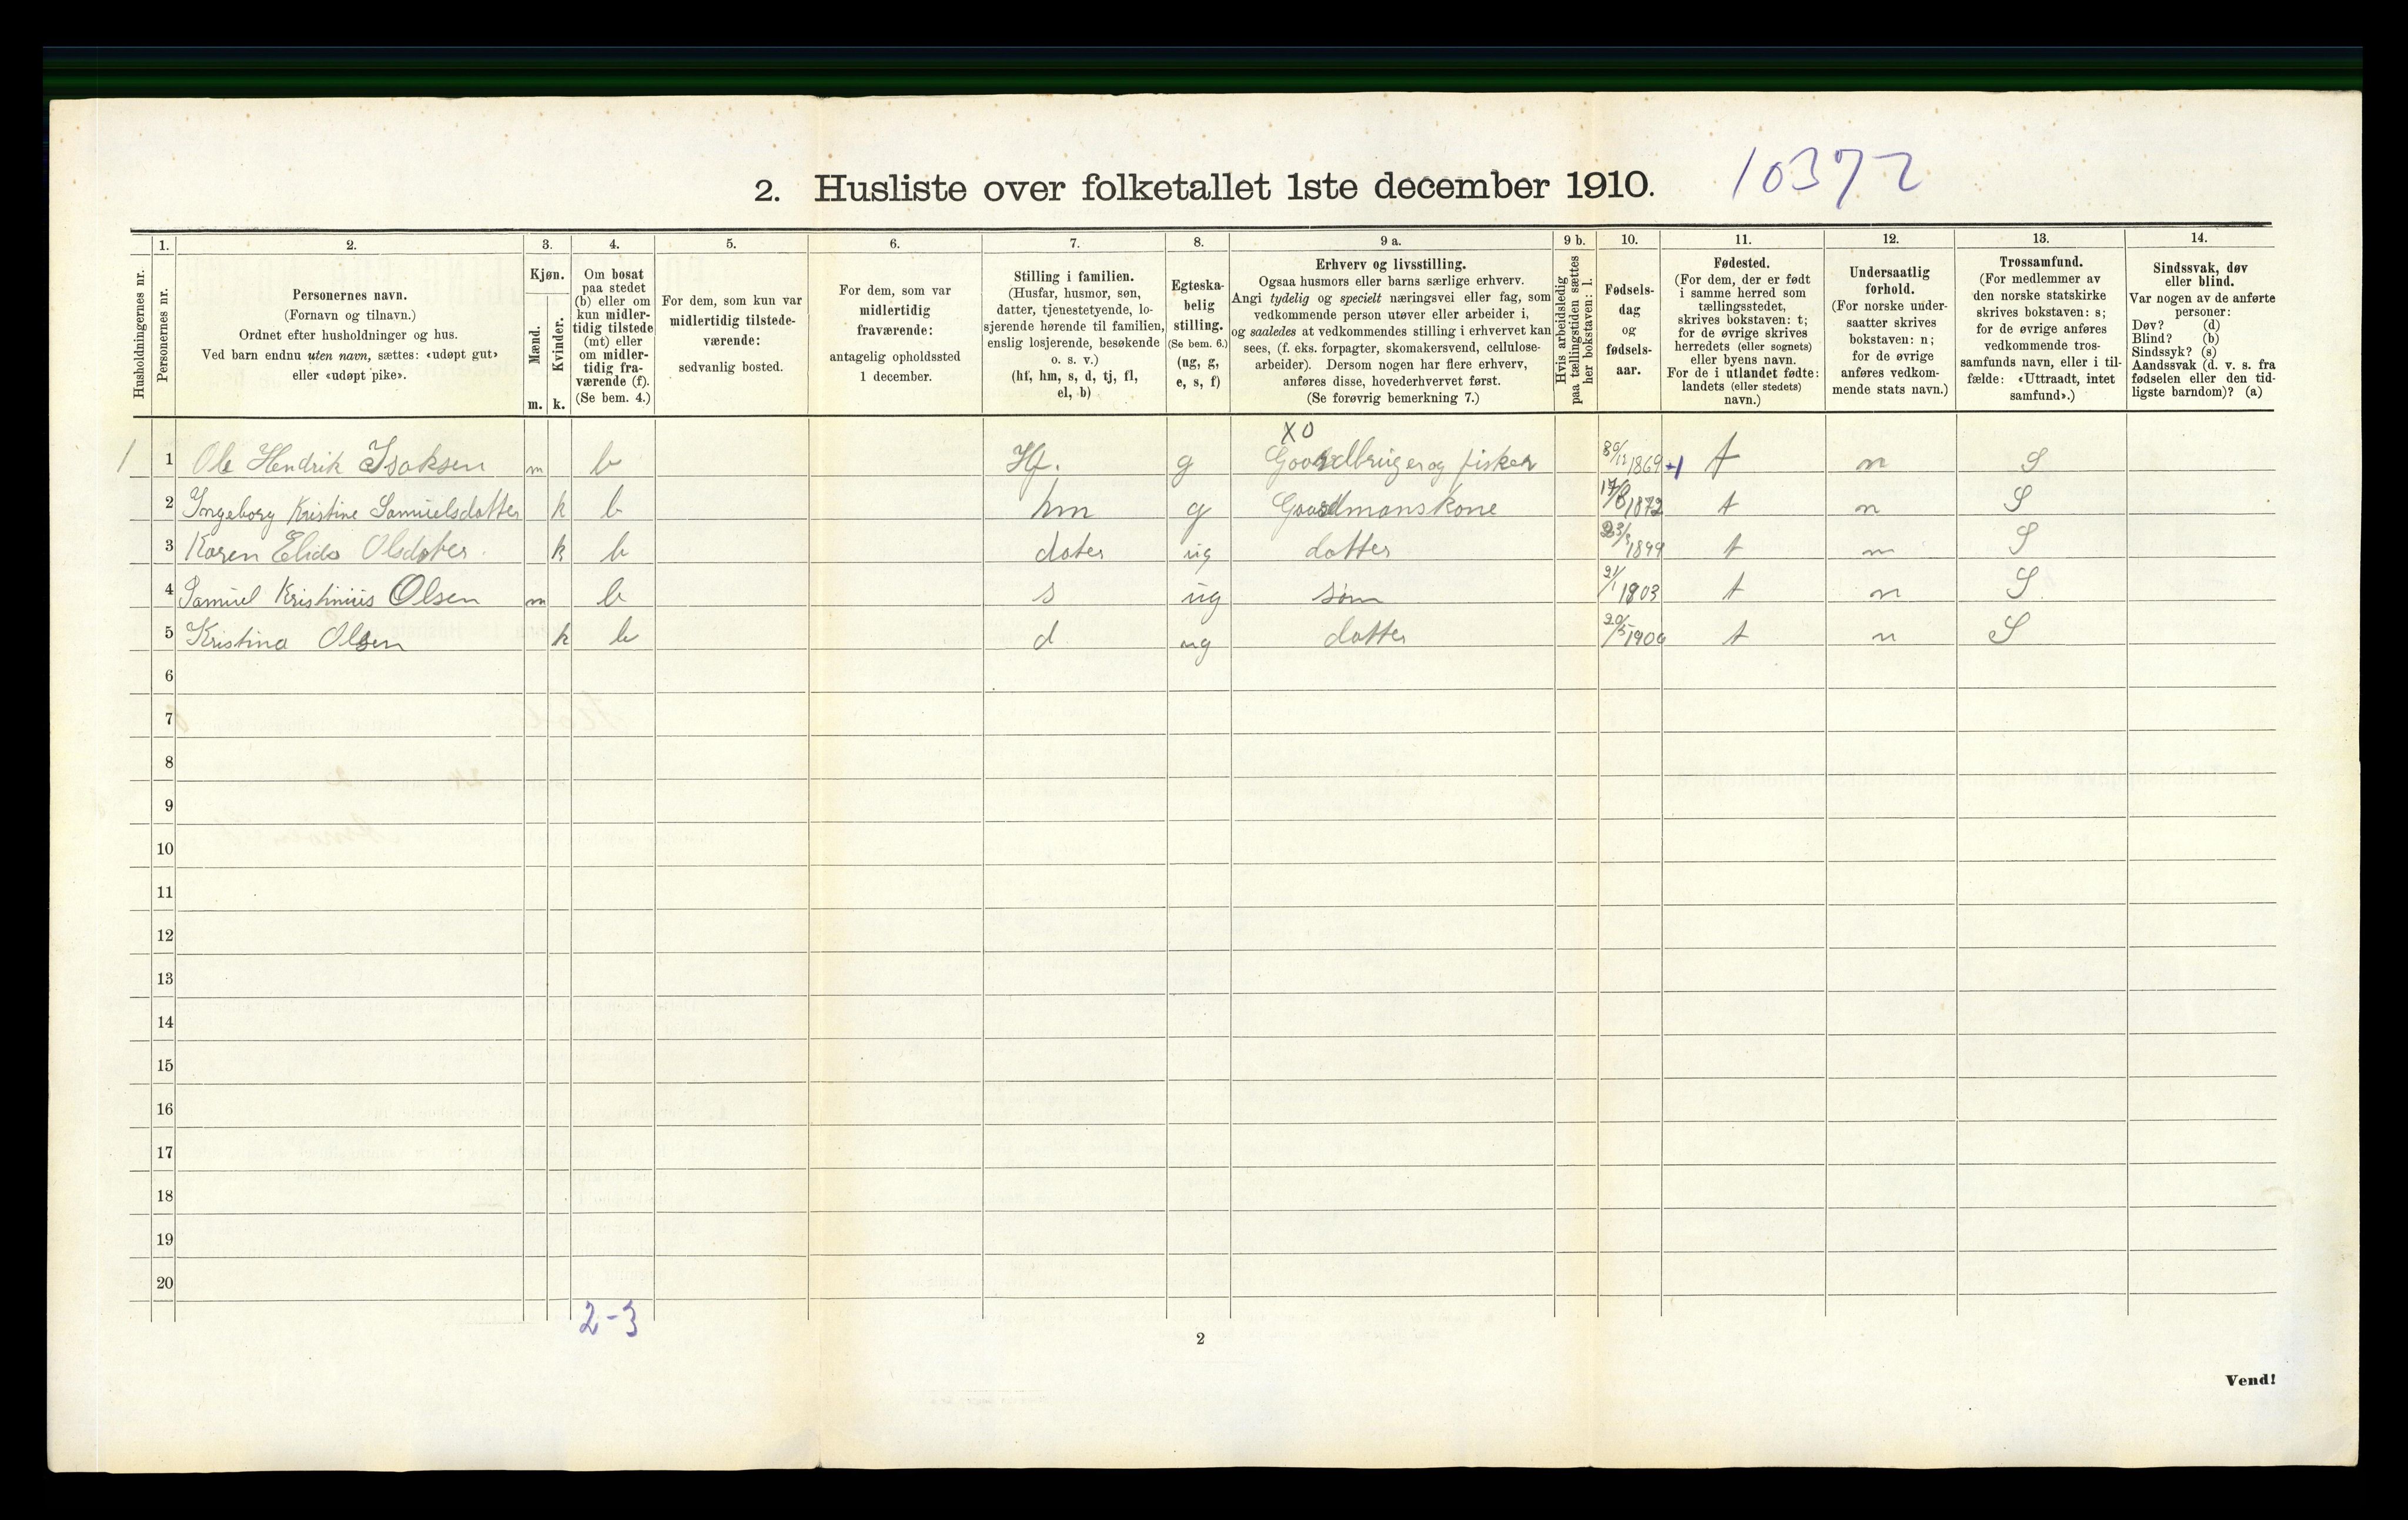 2. Husliste over folketallet 1ste december 1910. 10372
1. 2. 3. 4. 5. 6. 7. 8. 9 a. 9 b. 10. 11. 12. 13. 14.
Husholdningernes nr.
Personernes nr.
Personernes navn.
(Fornavn og tilnavn.)
Ordnet efter husholdninger og hus.
Ved barn endnu uten navn, sættes: «udøpt gut»
eller «udøpt pike».
Kjøn.
Mænd.
Kvinder.
m. k.
Om bosat
paa stedet
(b) eller om
kun midler-
tidig tilstede
(mt) eller
om midler-
tidig fra-
værende (f).
(Se bem. 4.)
For dem, som kun var
midlertidig tilstede-
værende:
sedvanlig bosted.
For dem, som var
midlertidig
fraværende:
antagelig opholdssted
1 december.
Stilling i familien.
(Husfar, husmor, søn,
datter, tjenestetyende, lo-
sjerende hørende til familien,
enslig losjerende, besøkende
o. s. v.)
(hf, hm, s, d, tj, fl,
el, b)
Egteska-
belig
stilling.
(Se bem. 6.)
(ug, g,
e, s, f)
Erhverv og livsstilling.
Ogsaa husmors eller barns særlige erhverv.
Angi tydelig og specielt næringsvei eller fag, som
vedkommende person utøver eller arbeider i,
og saaledes at vedkommendes stilling i erhvervet kan
sees, (f. eks. forpagter, skomakersvend, cellulose-
arbeider). Dersom nogen har flere erhverv,
anføres disse, hovederhvervet først.
(Se forøvrig bemerkning 7.)
Hvis arbeidsledig
paa tællingstiden sættes
her bokstaven: l.
Fødsels-
dag
og
fødsels-
aar.
Fødested.
(For dem, der er født
i samme herred som
tællingsstedet,
skrives bokstaven: t;
for de øvrige skrives
herredets (eller sognets)
eller byens navn.
For de i utlandet fødte:
landets (eller stedets)
navn.)
Undersaatlig
forhold.
(For norske under-
saatter skrives
bokstaven: n;
for de øvrige
anføres vedkom-
mende stats navn.)
Trossamfund.
(For medlemmer av
den norske statskirke
skrives bokstaven: s;
for de øvrige anføres
vedkommende tros-
samfunds navn, eller i til-
fælde: «Uttraadt, intet
samfund».)
Sindssvak, døv
eller blind.
Var nogen av de anførte
personer:
Døv? (d)
Blind? (b)
Sindssyk? (s)
Aandssvak (d. v. s. fra
fødselen eller den tid-
ligste barndom)? (a)
X0
1 1 Ole Hendrik Isaksen m b Hf. g Gaardbruger og fisker 30/12 1869 t n S
2 Ingeborg Kristine Samuelsdatter k b hm g Gaardmanskone 17/8 1872 t n S
3 Karen Elida Olsdater. k b dater ug datter 1899 t n S
4 Samuel Kristinius Olsen m b s ug søn 21/1 1903 t n S
5 Kristina Olsen k b d ug datter 20/5 1906 t n S
6
7
8
9
10
11
12
13
14
15
16
17
18
19
20
2-3
2
Vend!